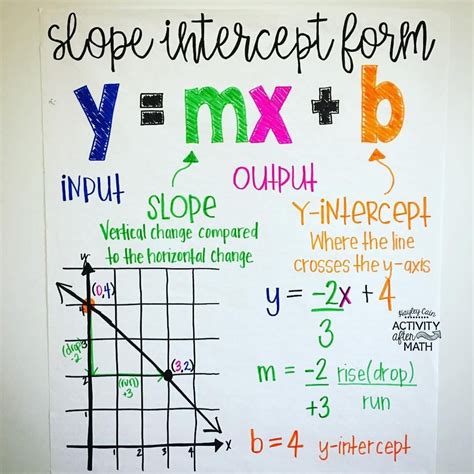 slope intercept form
y = mx + b
INPUT
OUTPUT
SLOPE
Vertical change compared
to the horizontal change
Y-INTERCEPT
Where the line
crosses the y-axis
y
(0,4)
4
3
(drop)
-2
2
(3,2)
(run)
+3
1
1 2 3 4 x
y = -2x + 4
3
Kayley Cain
ACTIVITY
after
MATH
m = -2 rise(drop)
+3 run
b = 4 y-intercept